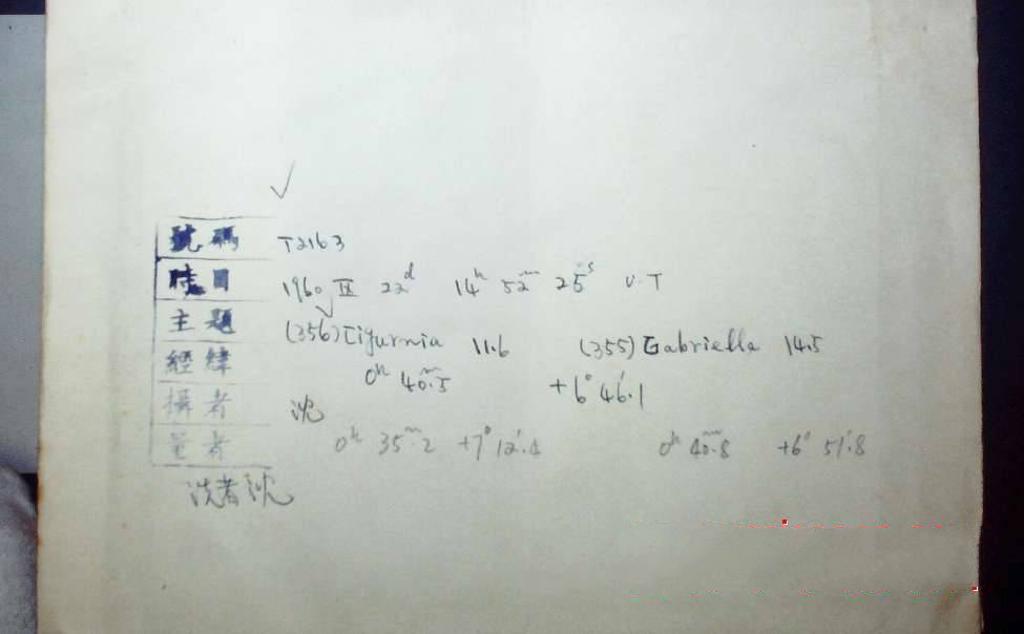 ✓
號碼 T2163
時日 1960 II 22d 14h 52m 25s U.T
主題 (356) Ligurnia 11.6 (355) Gabriella 14.5
經緯 0h 40m.5 +6° 46'.1
攝者 沈
量者 0h 35m.2 +7° 12'.4 0h 40m.8 +6° 51'.8
洗者 沈